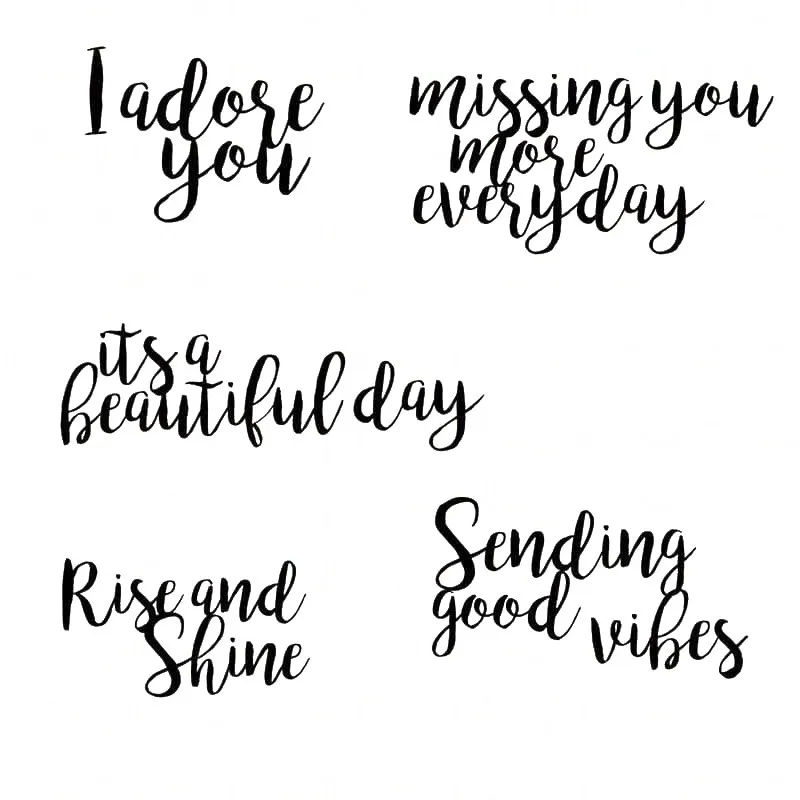 I adore
you
missing you
more
everyday
its a
beautiful day
Rise and
Shine
Sending
good vibes